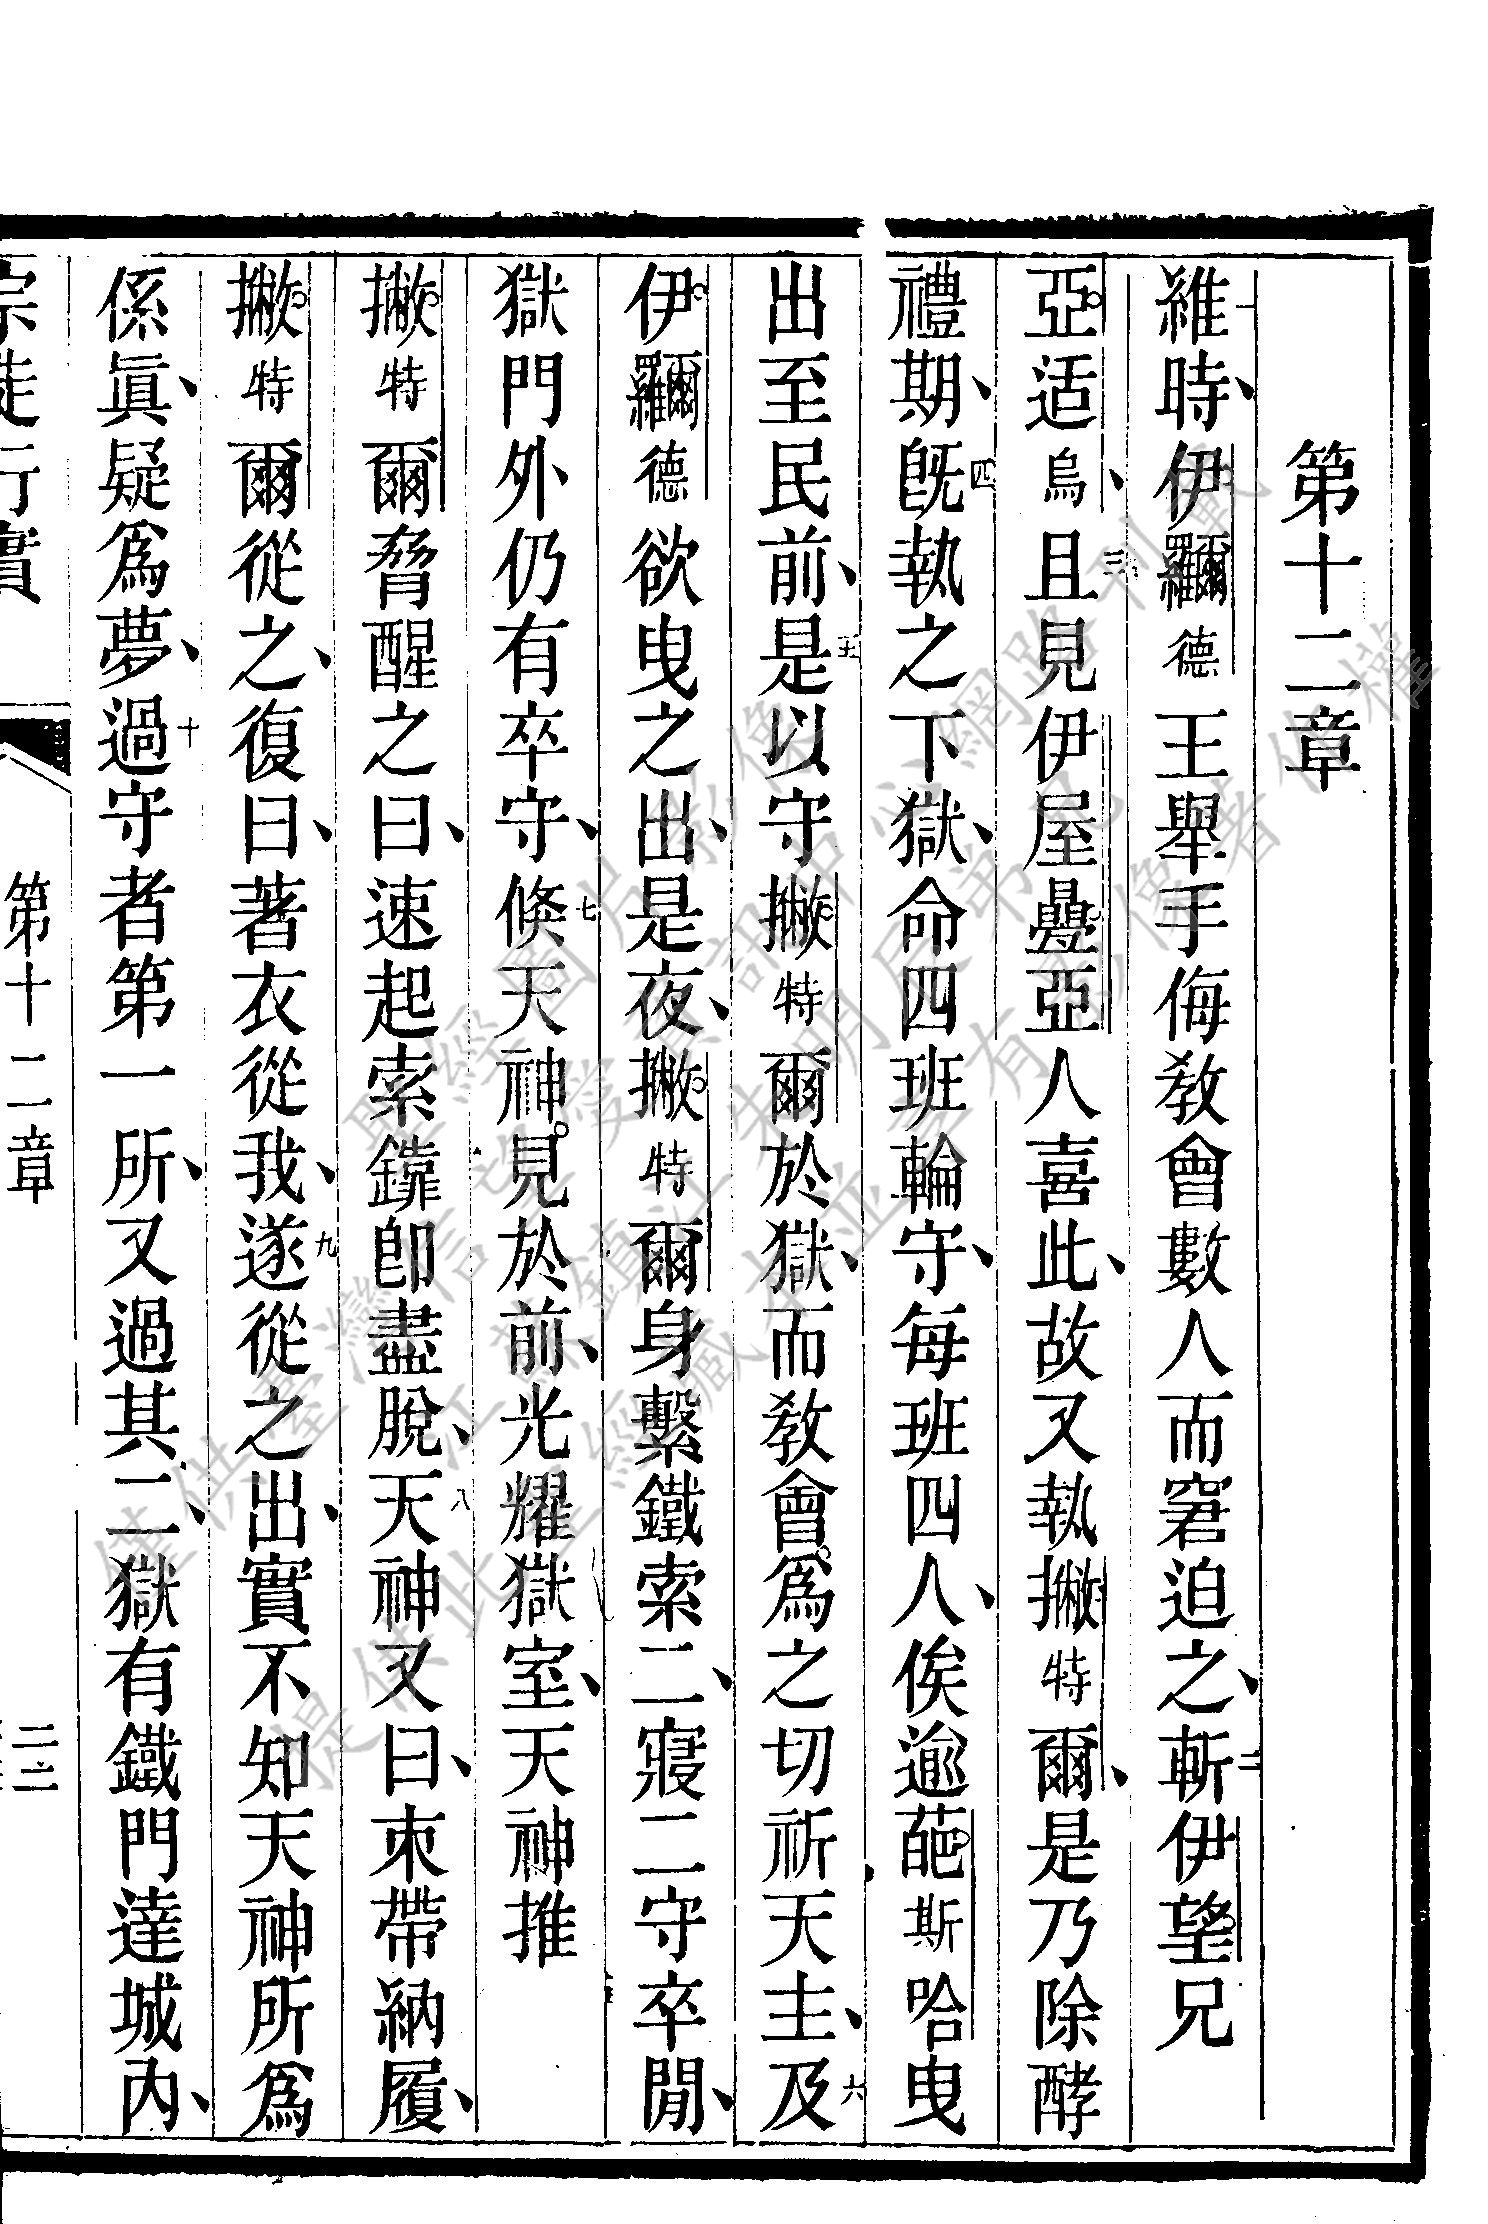 第十二章
一維時、伊羅爾維德王舉手侮教會數人而窘迫之、二斬伊望兄
亞适烏、三且見伊屋疊亞人喜此、故又執撇特爾、是乃除酵
禮期、四旣執之下獄、命四班輪守、每班四人、俟逾葩斯哈曳
出至民前、五是以守撇特爾於獄、而教會爲之切祈天主、及六
伊羅爾維德欲曳之出、是夜、撇特爾身繫鐵索二、寢二守卒閒、
獄門外仍有卒守、七倏天神見於前、光耀獄室、天神推
撇特爾脅醒之曰、速起索鐐卽盡脫、八天神又曰、束帶納履、
撇特爾從之、復曰、著衣從我、九遂從之出、實不知天神所爲
係眞、疑爲夢、十過守者第一所、又過其二、獄有鐵門達城內、
宗徒行實
第十二章
二二
僅供臺灣信望愛資訊中心網路刊載